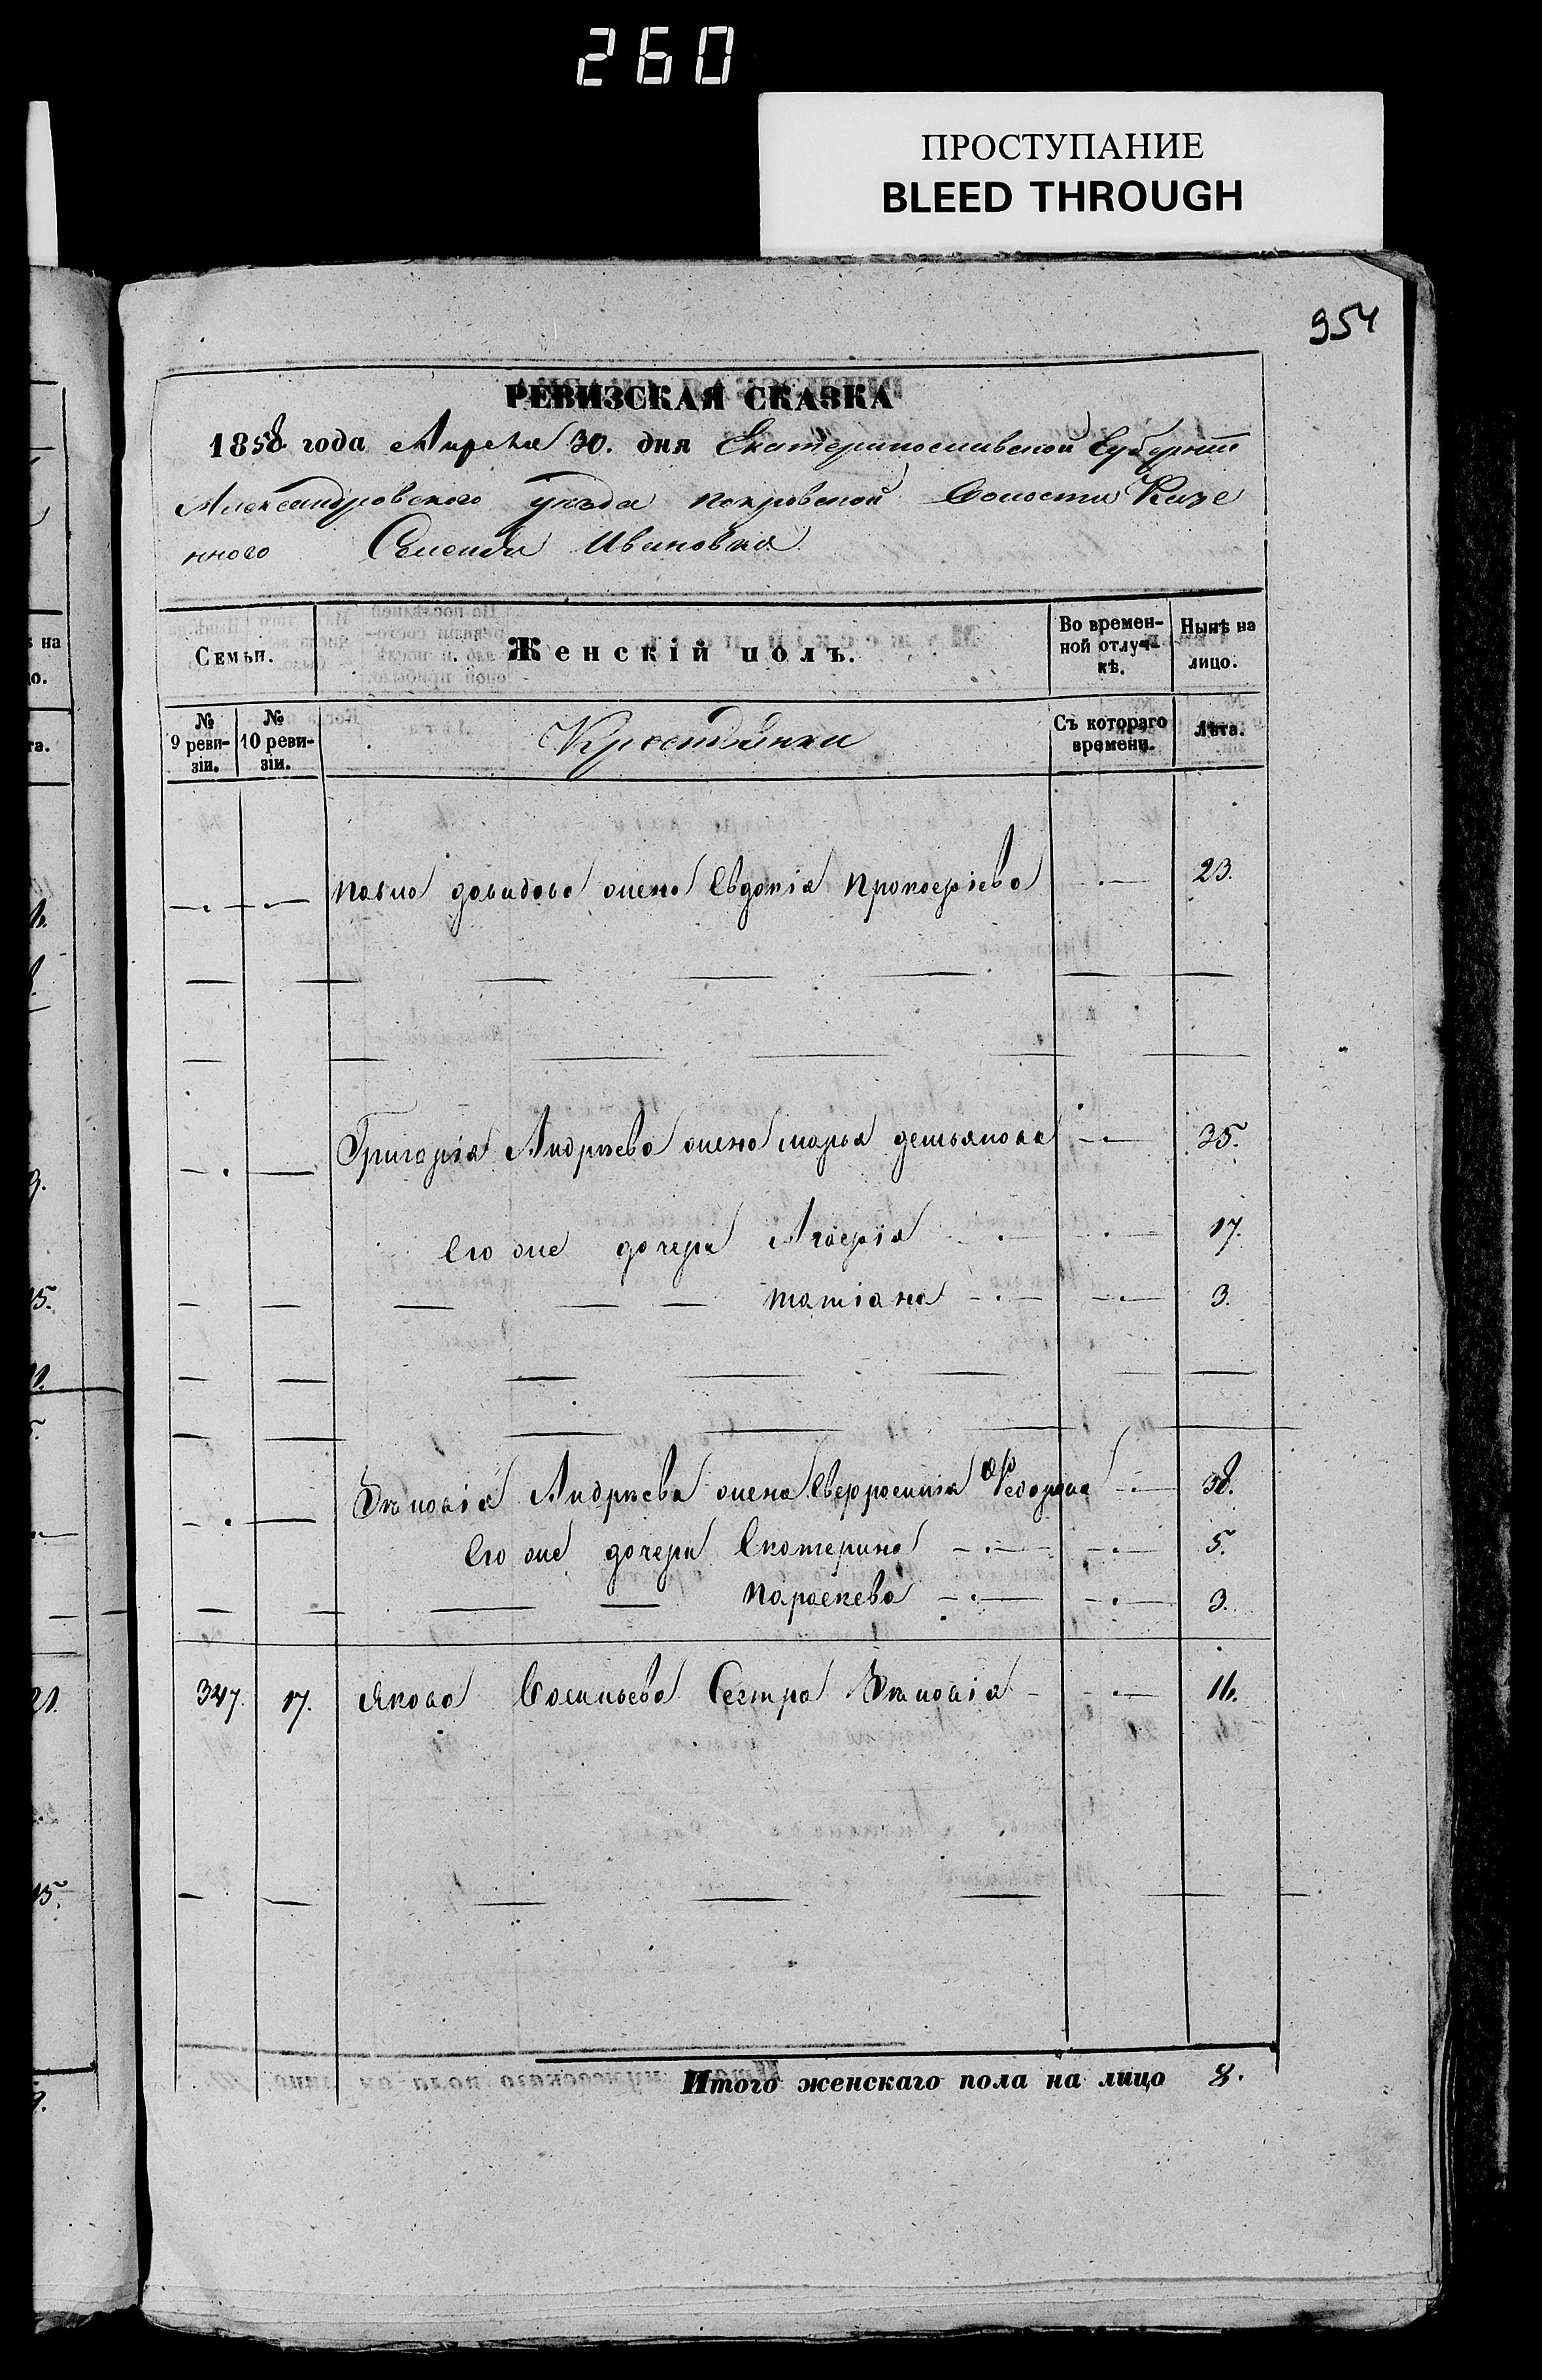 260
ПРОСТУПАНИЕ
BLEED THROUGH
954
РЕВИЗСКАЯ СКАЗКА
1858 года Апреля 30. дня Екатеринославской Губернии
Александровского уезда Покровской Волости Казе
нного Селенія Ивановка
Семьи. Женскій полъ. Во времен-ной отлуч-кѣ. Нынѣ на лицо.
№ 9 реви-зіи. № 10 реви-зіи. Крестьянки Съ котораго времени. Лѣта.
Павла давидова жена Евдокія Прокофіева 23.
Григорія Андрѣева жена марья демьянова 35.
Его же дочери Агафія 17.
татіана 3.
Зѣновія Андрѣева жена Евфросинія Федорова 38.
Его же дочери Екатерина 5.
Параскева 3.
347. 17. Якова Васильева Сестра Зѣновія 16.
Итого женскаго пола на лицо 8.